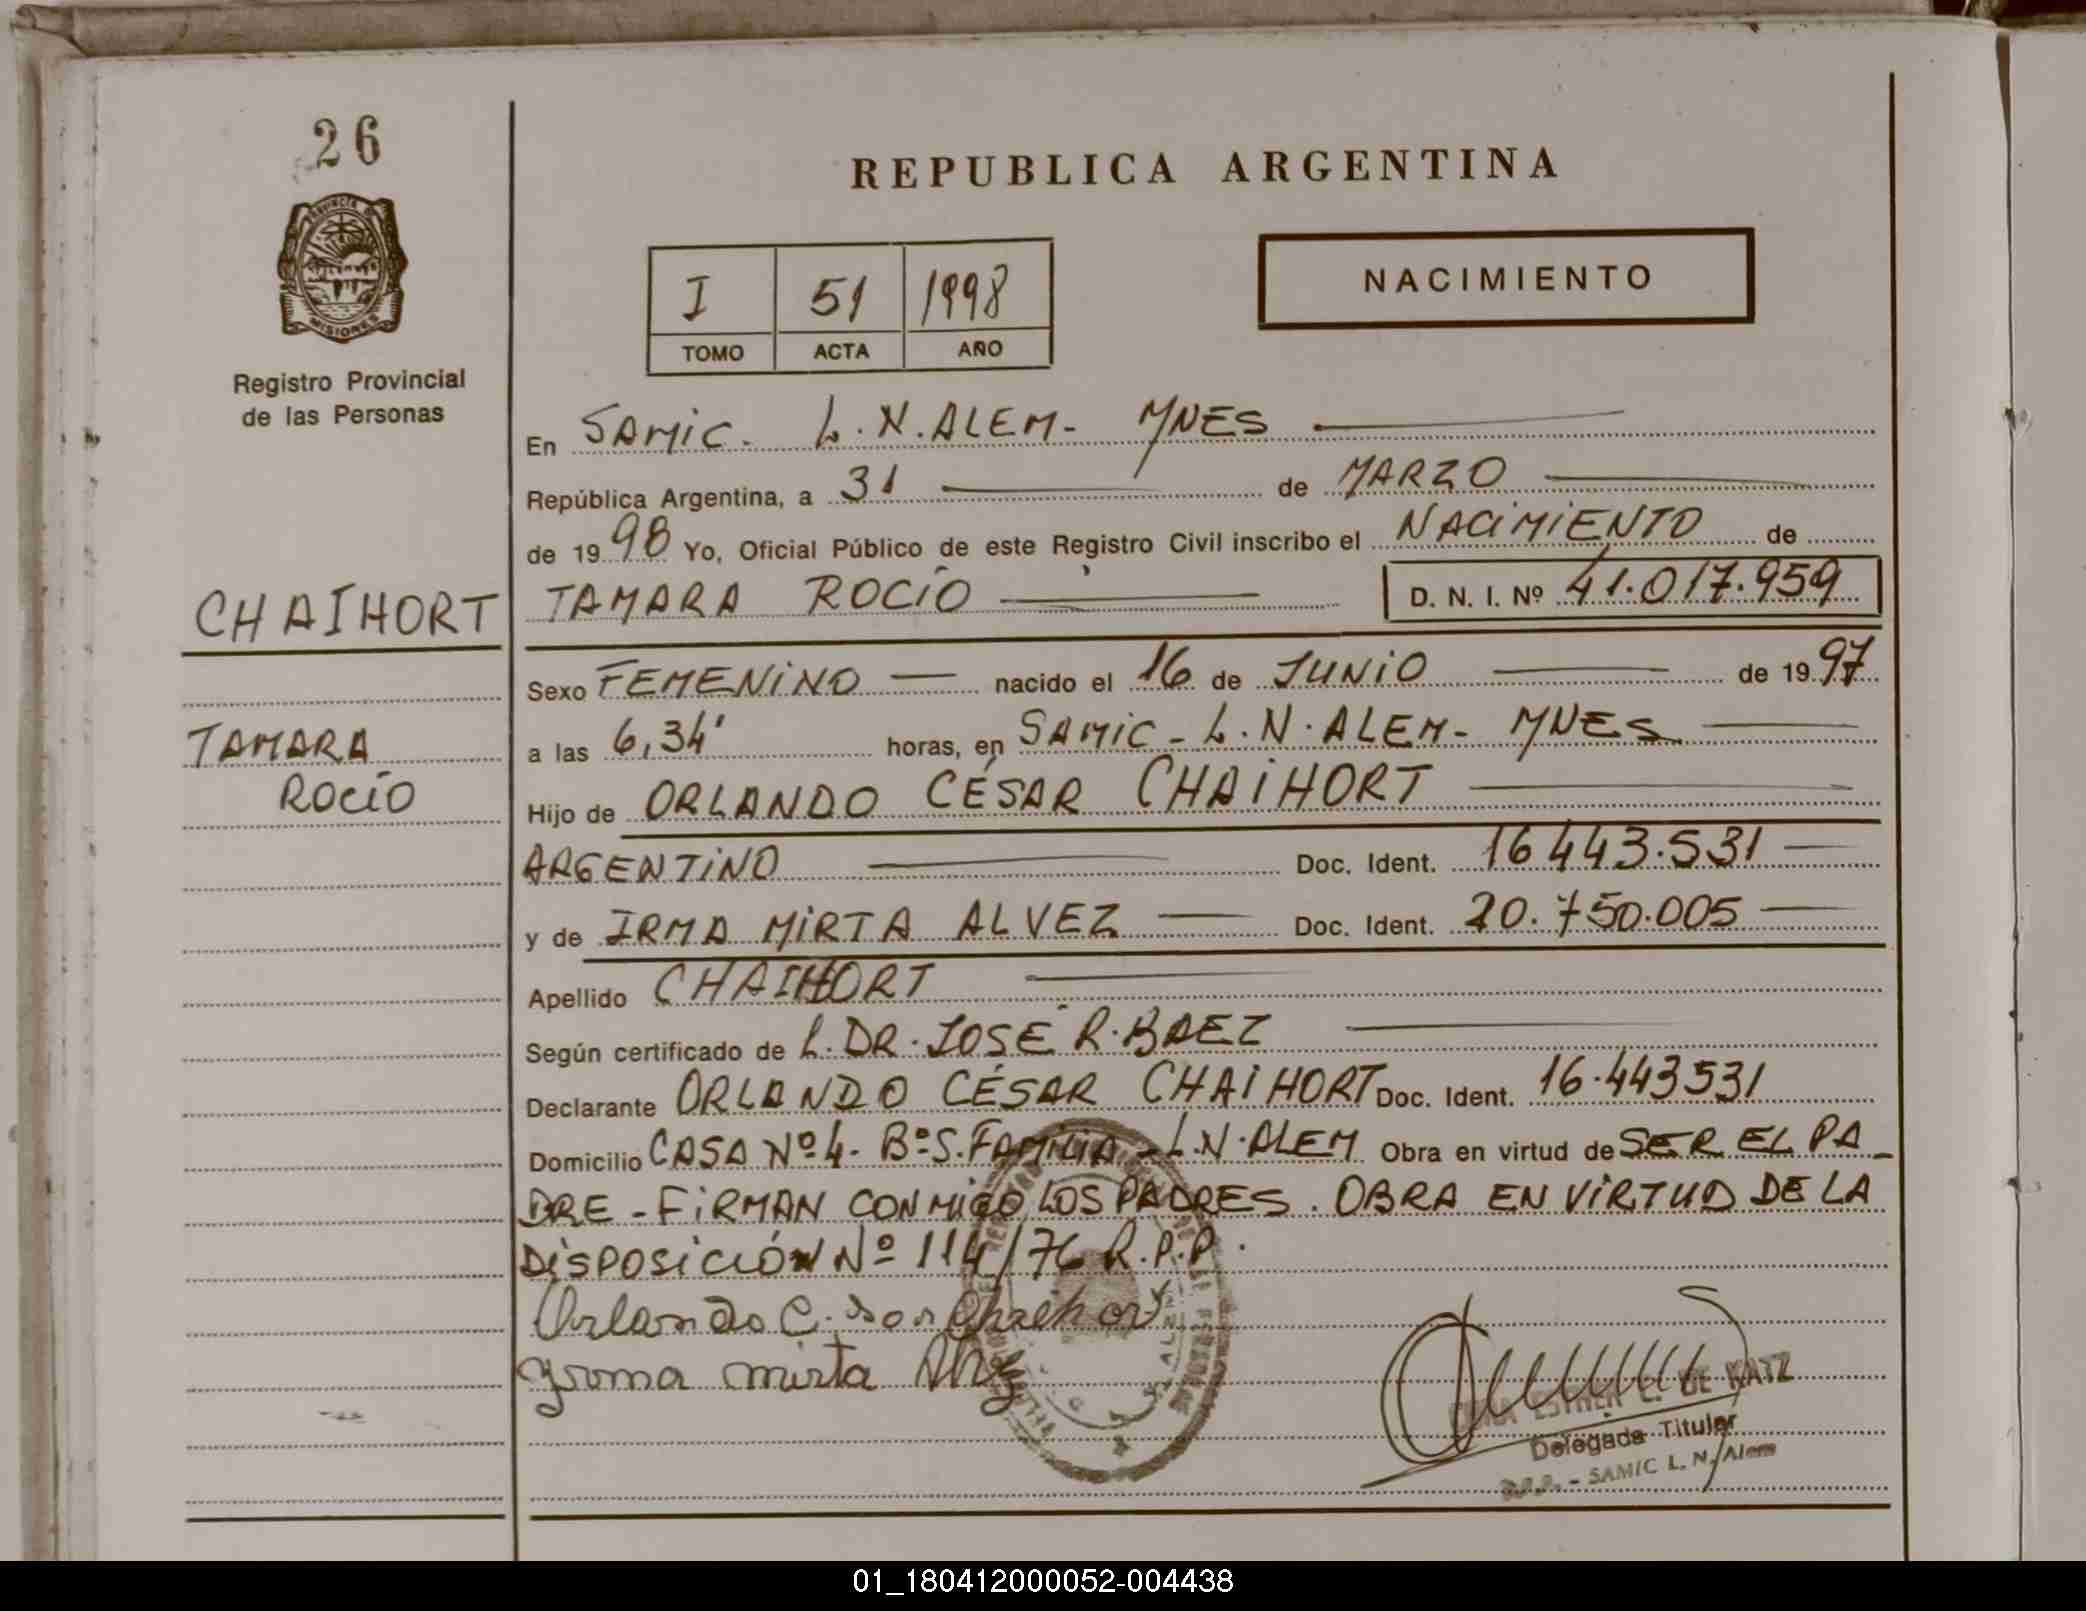 26
PROVINCIA D
MISIONES
Registro Provincial
de las Personas
REPUBLICA ARGENTINA
I 51 1998
TOMO ACTA AÑO
NACIMIENTO
En SAMIC. L.N.ALEM- MNES
República Argentina, a 31 de MARZO
de 1998 Yo, Oficial Público de este Registro Civil inscribo el NACIMIENTO de
CHAIHORT
TAMARA ROCÍO D. N. I. Nº 41.017.959
Sexo FEMENINO nacido el 16 de JUNIO de 1997
TAMARA
ROCÍO
a las 6,34' horas, en SAMIC - L.N.ALEM- MNES
Hijo de ORLANDO CÉSAR CHAIHORT
ARGENTINO Doc. Ident. 16443.531
y de IRMA MIRTA ALVEZ Doc. Ident. 20.750.005
Apellido CHAIHORT
Según certificado de L.DR.JOSÉ R.BAEZ
Declarante ORLANDO CÉSAR CHAIHORT Doc. Ident. 16.443531
Domicilio CASA Nº4- Bº S.FAMILIA - L.N.ALEM Obra en virtud de SER EL PA_
DRE - FIRMAN CONMIGO LOS PADRES. OBRA EN VIRTUD DE LA
DISPOSICIÓN Nº 114/76 R.P.P.
Orlando C.
mirta
ESTHER DE KATZ
Delegada Titular
- SAMIC L. N. Alem
01_180412000052-004438